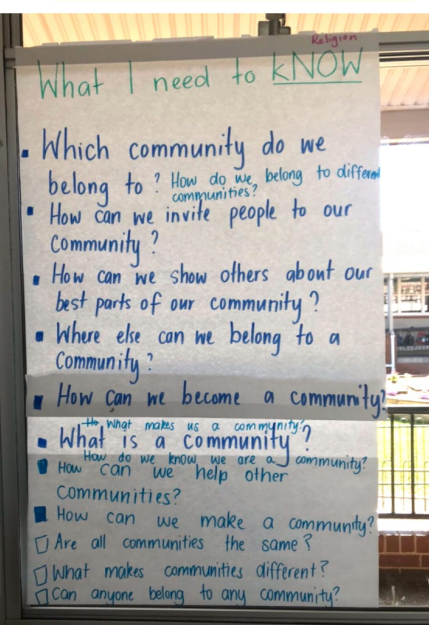 Religion
What I need to kNOW
Which community do we
belong to? How do we belong to different
communities?
How can we invite people to our
Community?
How can we show others about our
best parts of our community?
Where else can we belong to a
Community?
How can we become a community?
What makes us a community?
What is a community?
How do we know we are a community?
How can we help other
Communities?
How can we make a community?
Are all communities the same?
What makes communities different?
Can anyone belong to any community?